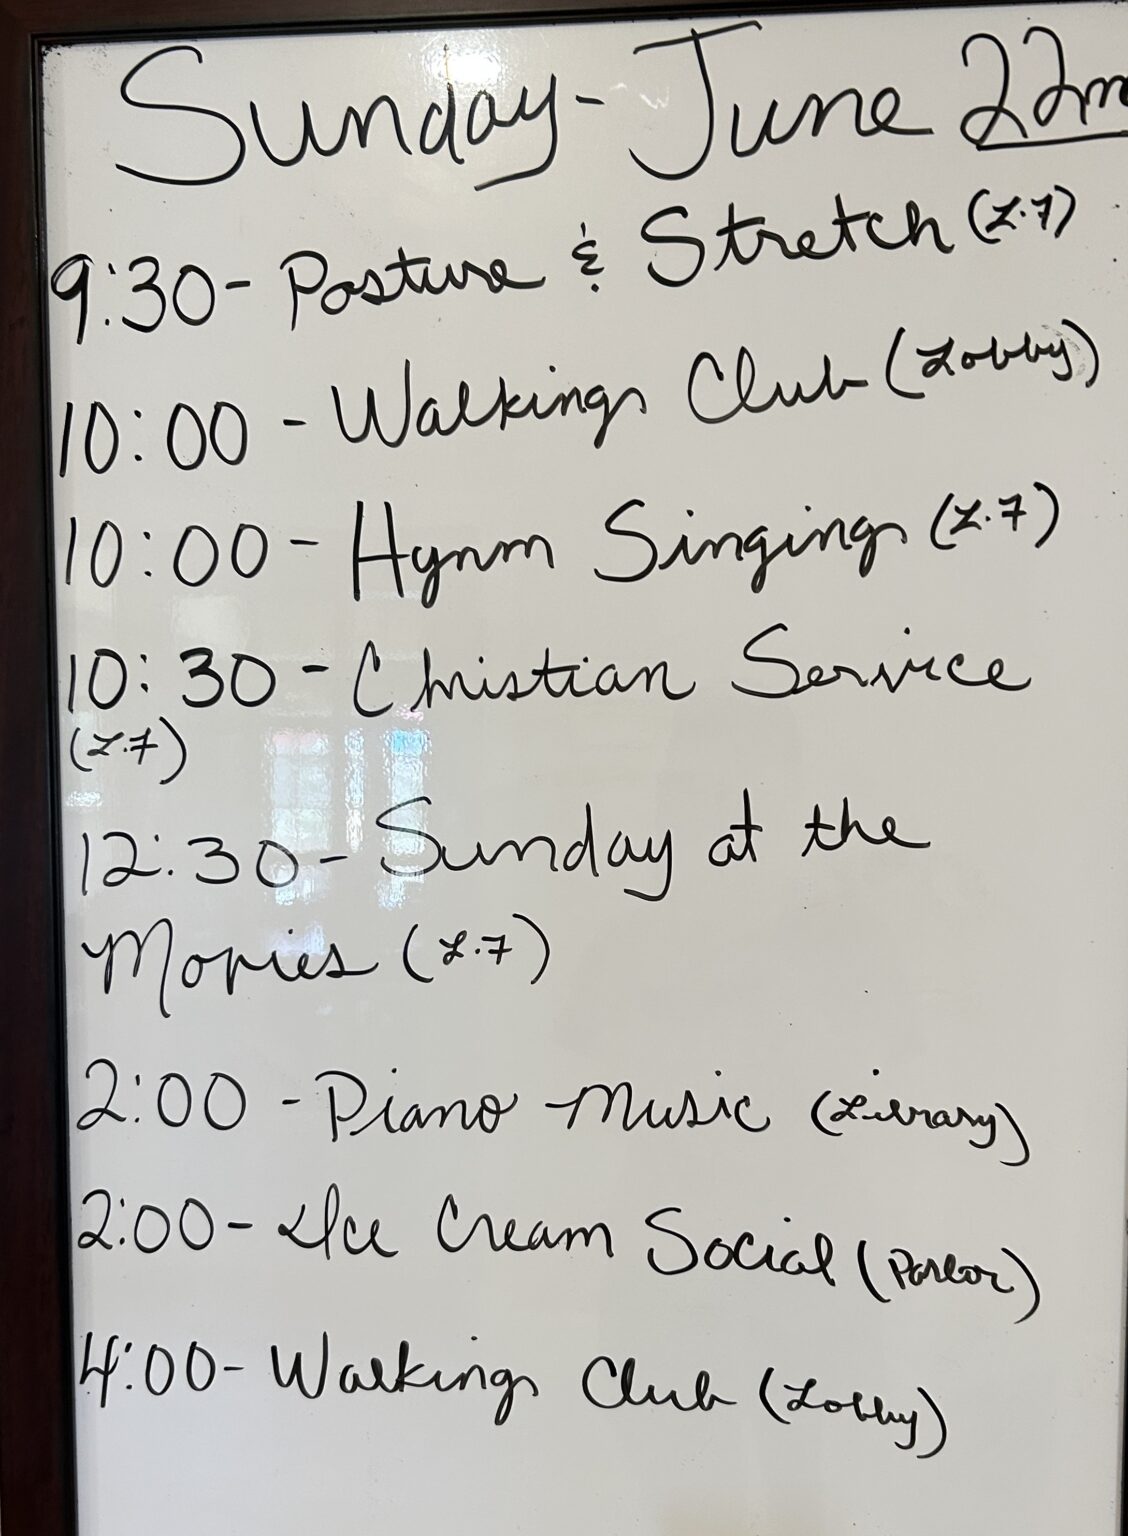 Sunday - June 22n
9:30 - Posture & Stretch (L.7)
10:00 - Walking Club (Lobby)
10:00 - Hynm Singing (L.7)
10:30 - Christian Service
(L.7)
12:30 - Sunday at the
Movies (L.7)
2:00 - Piano Music (Library)
2:00 - Ice Cream Social (Parlor)
4:00 - Walking Club (Lobby)